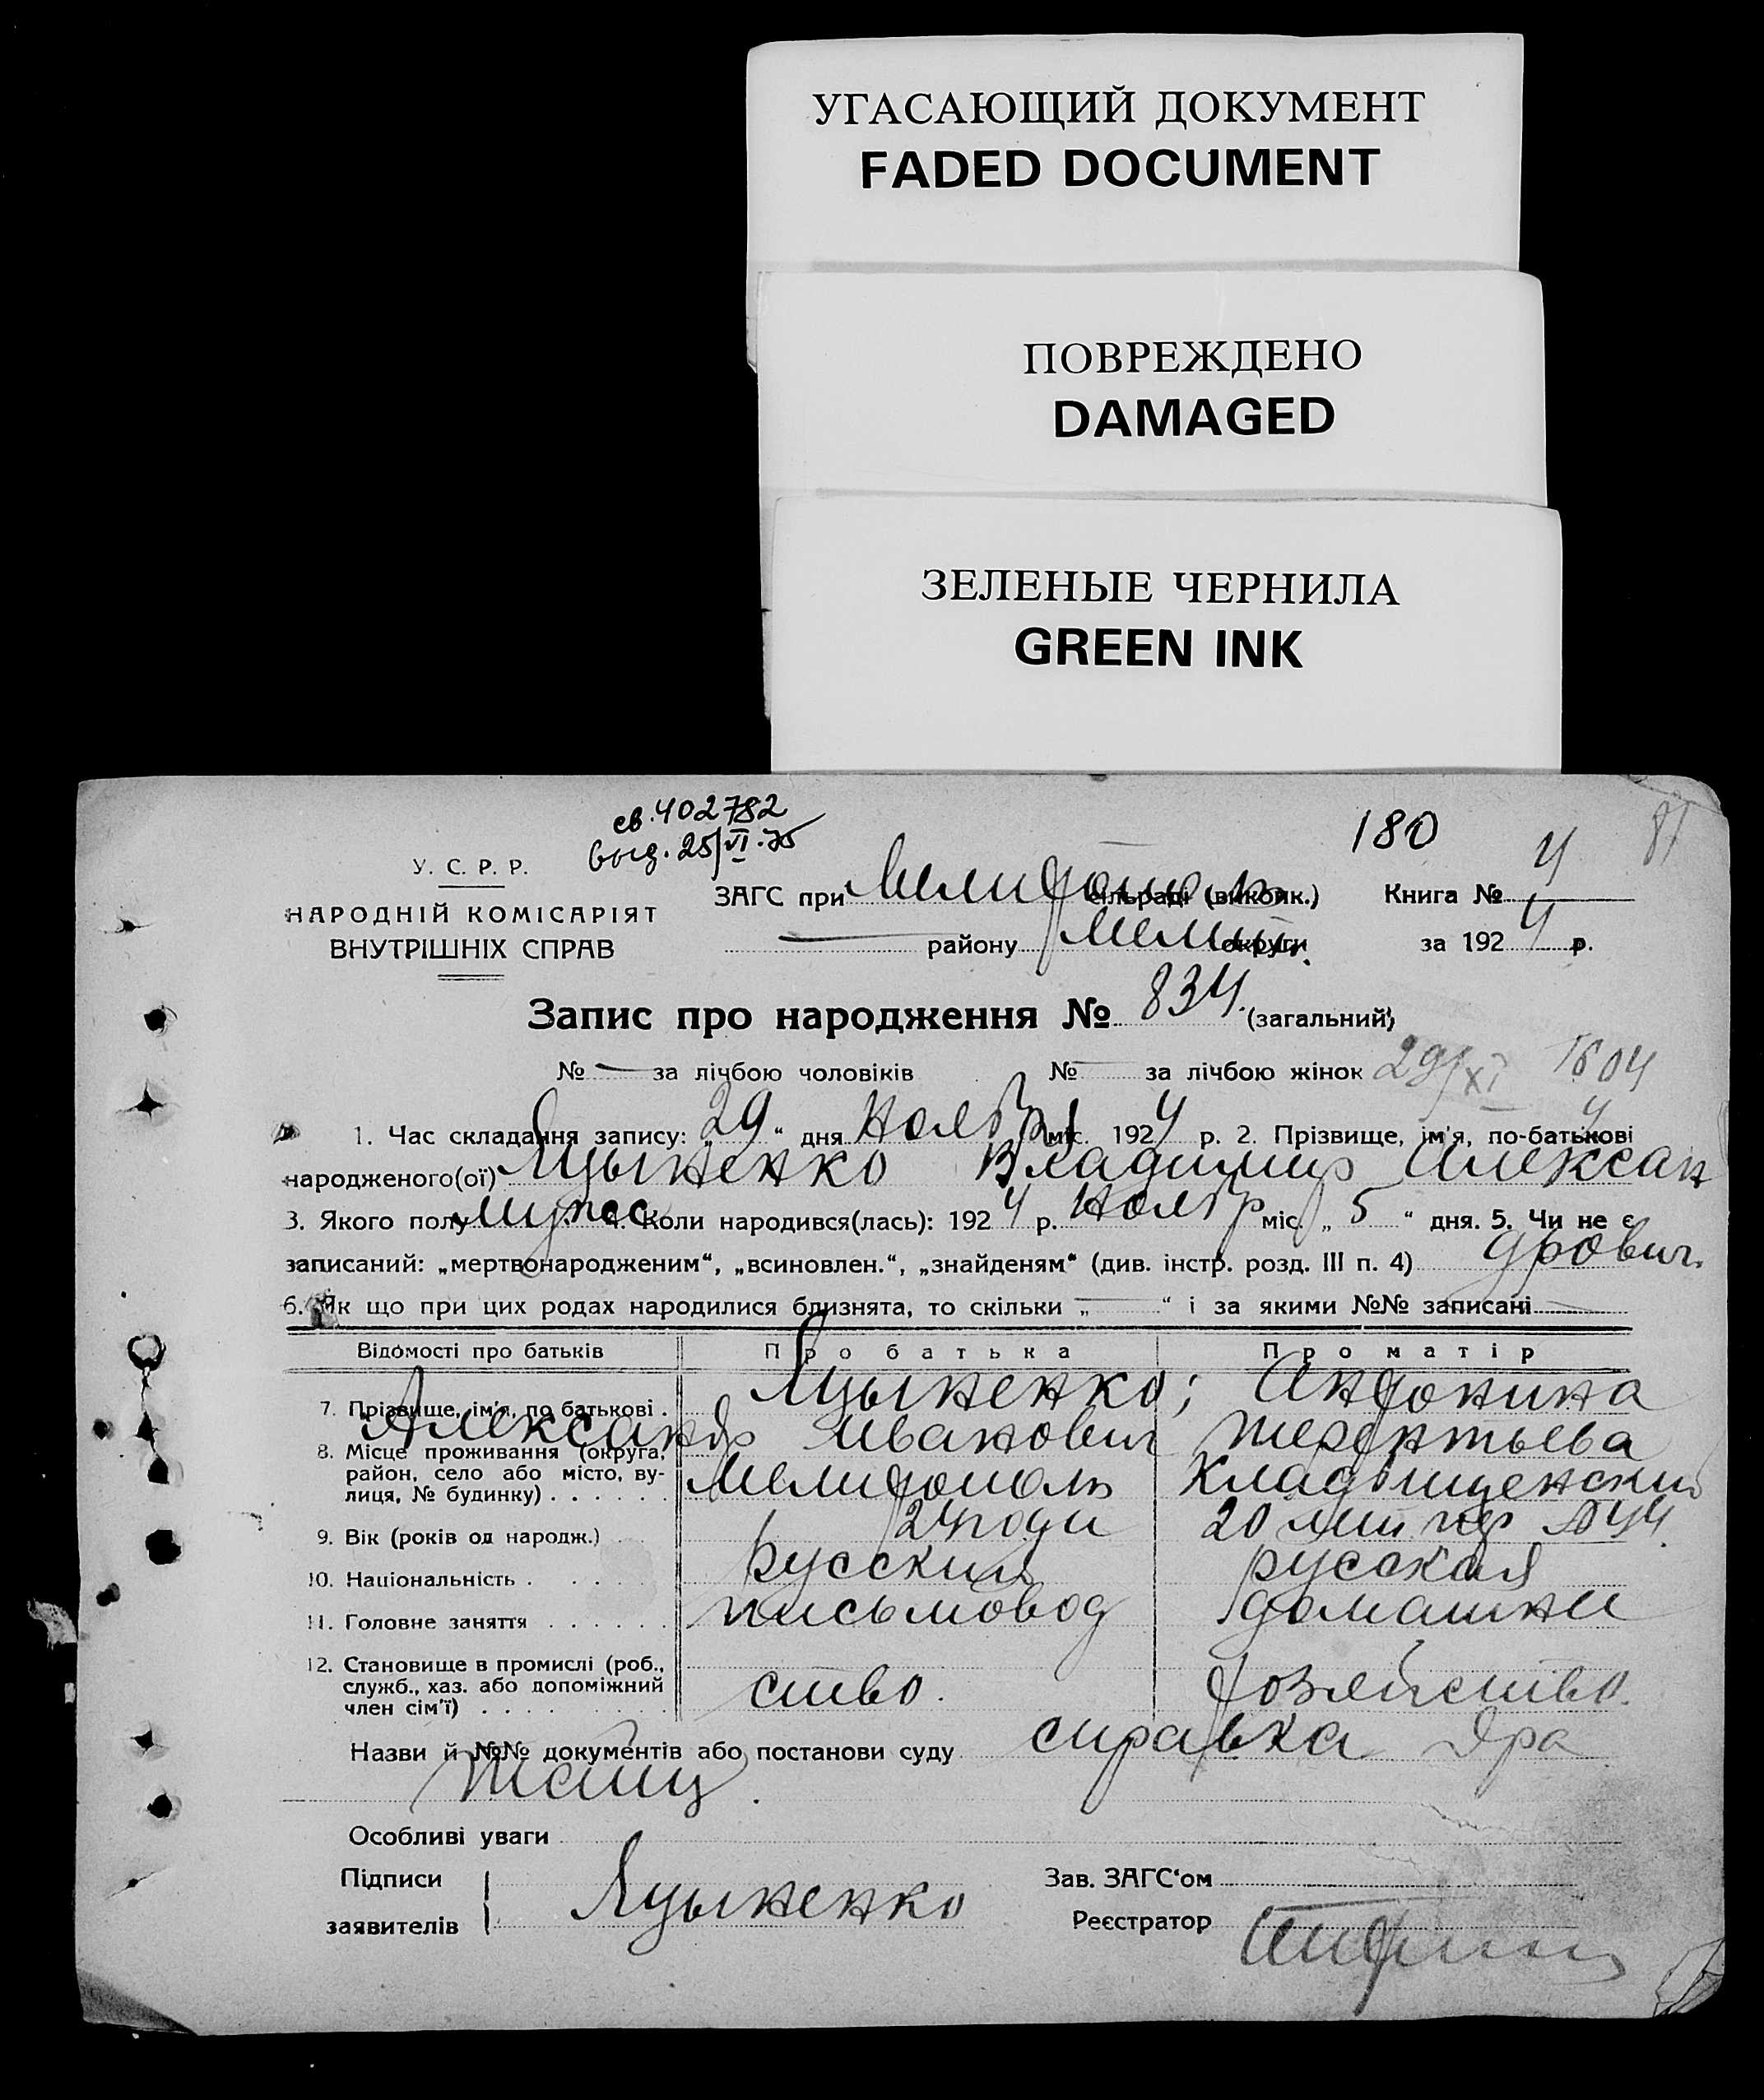 УГАСАЮЩИЙ ДОКУМЕНТ
FADED DOCUMENT
ПОВРЕЖДЕНО
DAMAGED
ЗЕЛЕНЫЕ ЧЕРНИЛА
GREEN INK
св. 402782
выд. 25/VI-75
180
81
У. С. Р. Р.
НАРОДНІЙ КОМІСАРІЯТ
ВНУТРІШНІХ СПРАВ
ЗАГС при Мелитополь сільраді (виконк.) Книга № 4
району Мелит. округи за 1924 р.
Запис про народження № 834. (загальний)
№ — за лічбою чоловіків № — за лічбою жінок 29/XI 1604
1. Час складання запису: „29“ дня Ноября міс. 1924 р. 2. Прізвище, ім'я, по-батькові
народженого(ої) Яцыненко Владимир Алексан
3. Якого полу муж. 4. Коли народився(лась): 1924 р. Ноябр міс. „5“ дня. 5. Чи не є
записаний: „мертвонародженим“, „всиновлен.“, „знайденям“ (див. інстр. розд. III п. 4) дрович.
6. Як що при цих родах народилися близнята, то скільки „—“ і за якими №№ записані
Відомості про батьків Про батька Про матір
7. Прізвище, ім'я, по батькові . Яцыненко; Антонина
Александр Иванович Терентьева
8. Місце проживання (округа,
район, село або місто, ву-
лиця, № будинку) . . . . . . Мелитополь Кладбищенский
9. Вік (років од народж.) 24 года 20 лет
10. Національність . . . . . русский русская
11. Головне заняття . . . . . . письмовод домашнее
12. Становище в промислі (роб.,
служб., хаз. або допоміжний
член сім'ї) . . . . ство. хозяйство.
Назви й №№ документів або постанови суду справка Вра
Особливі уваги
Підписи
заявителів Яцыненко
Зав. ЗАГС'ом
Реєстратор